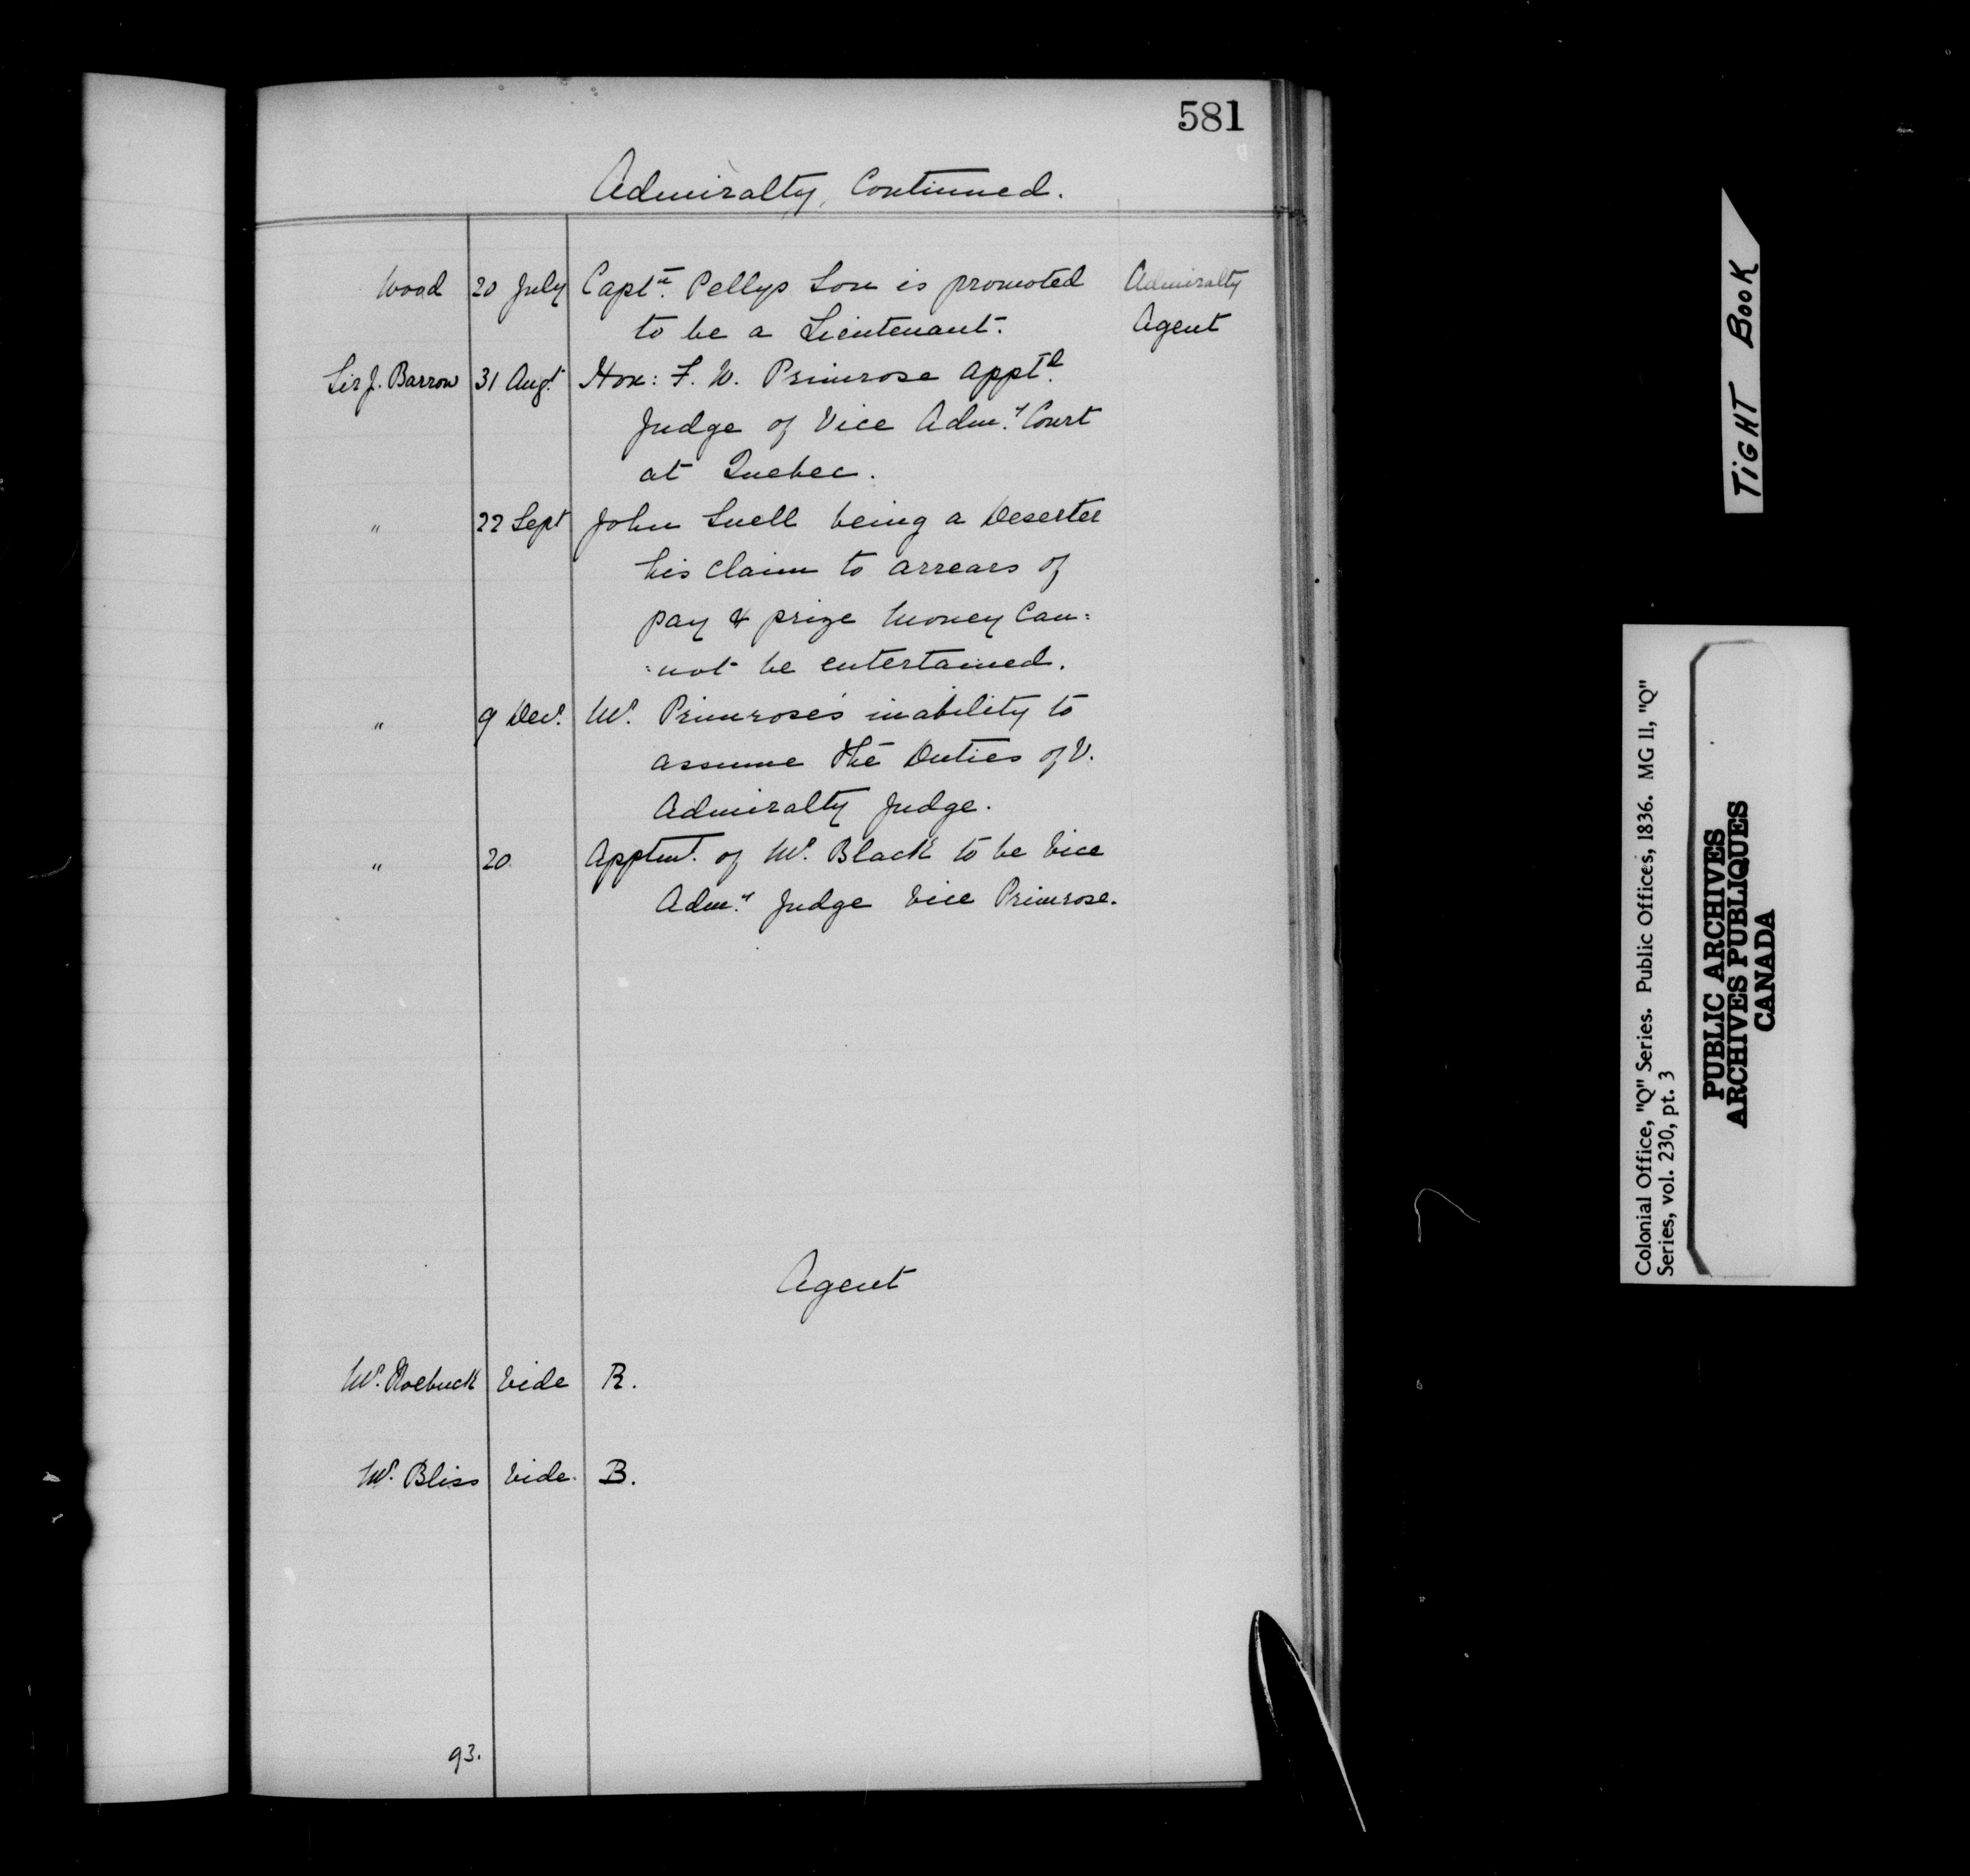 581
Admiralty, Continued.
Wood 20 July Captn. Pellys Son is promoted Admiralty
to be a Lieutenant. Agent
Sir J. Barrow 31 Augt. Hon: F. W. Primrose apptd.
Judge of Vice Admy. Court
at Quebec.
" 22 Sept John Snell being a Deserter
his claim to arrears of
pay & prize money Can=
=not be entertained.
" 9 Decr. Mr. Primrose's inability to
assume the Duties of V.
Admiralty Judge.
" 20 Apptmt. of Mr. Black to be Vice
Admy. Judge Vice Primrose.
Agent
Mr. Roebuck Vide R.
Mr. Bliss Vide. B.
93.
TIGHT BOOK
Colonial Office, "Q" Series. Public Offices, 1836. MG 11, "Q"
Series, vol. 230, pt. 3
PUBLIC ARCHIVES
ARCHIVES PUBLIQUES
CANADA